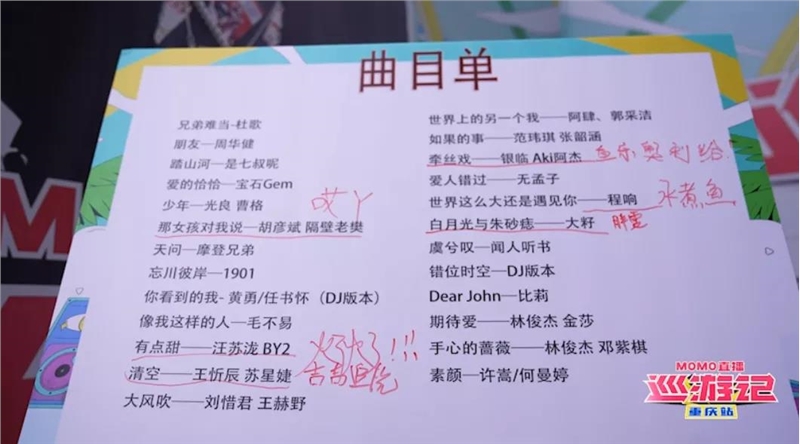 曲目单
兄弟难当-杜歌
朋友—周华健
踏山河—是七叔呢
爱的恰恰—宝石Gem
少年—光良 曹格
哎丫
那女孩对我说—胡彦斌 隔壁老樊
天问—摩登兄弟
忘川彼岸—1901
你看到的我- 黄勇/任书怀（DJ版本）
像我这样的人—毛不易
有点甜——汪苏泷 BY2
清空——王忻辰 苏星婕
大风吹——刘惜君 王赫野
世界上的另一个我——阿肆、郭采洁
如果的事——范玮琪 张韶涵
牵丝戏——银临 Aki阿杰
爱人错过——无孟子
世界这么大还是遇见你——程响
水煮鱼
白月光与朱砂痣——大籽
虞兮叹——闻人听书
错位时空——DJ版本
Dear John——比莉
期待爱——林俊杰 金莎
手心的蔷薇——林俊杰 邓紫棋
素颜——许嵩/何曼婷
MOMO直播
巡游记
重庆站